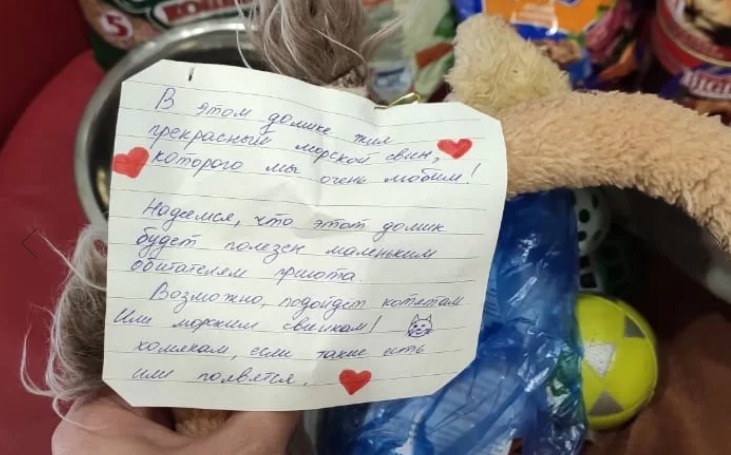 5
В этом домике жил
прекрасный морской свин,
которого мы очень любим!
Надеемся, что этот домик
будет полезен маленьким
обитателям приюта.
Возможно, подойдет котятам
или морским свинкам!
хомякам, если такие есть
или появятся.